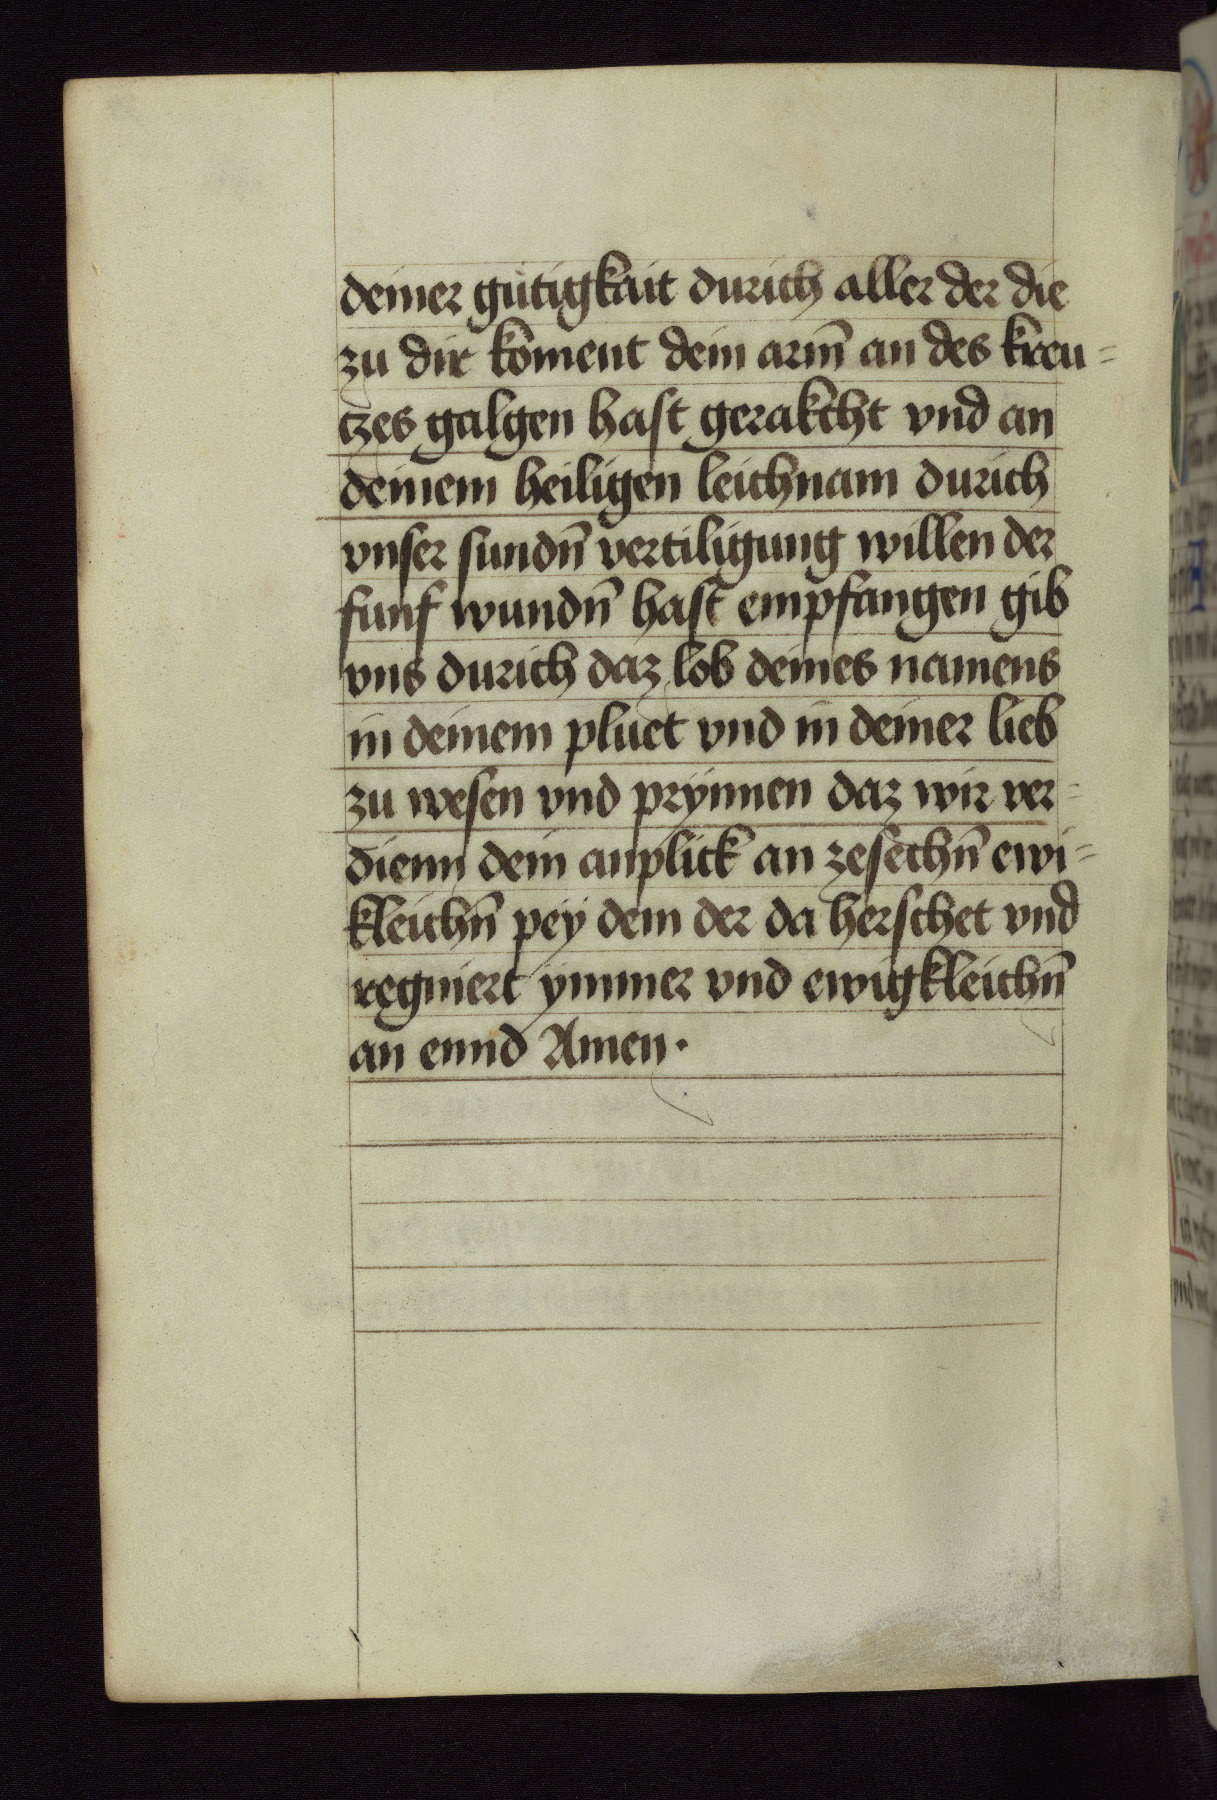 deiner gütigkait durich aller der die
zu dir koment dein armͤ an des kreu=
czes galgen hast gerakcht vnd an
deinem heiligen leichnam durich
vnser sundn̄ vertiligung willen der
funf wundn̄ hast empfangen gib
vns durich daz lob deines namens
in deinem pluet vnd in deiner lieb
zu wesen vnd prÿnnen daz wir ver=
dienn dein anplick an zesechn̄ ewi=
kleichn̄ peÿ dem der da herschet vnd
regniert ÿmmer vnd ewigkleichn̄
an ennd Amen·